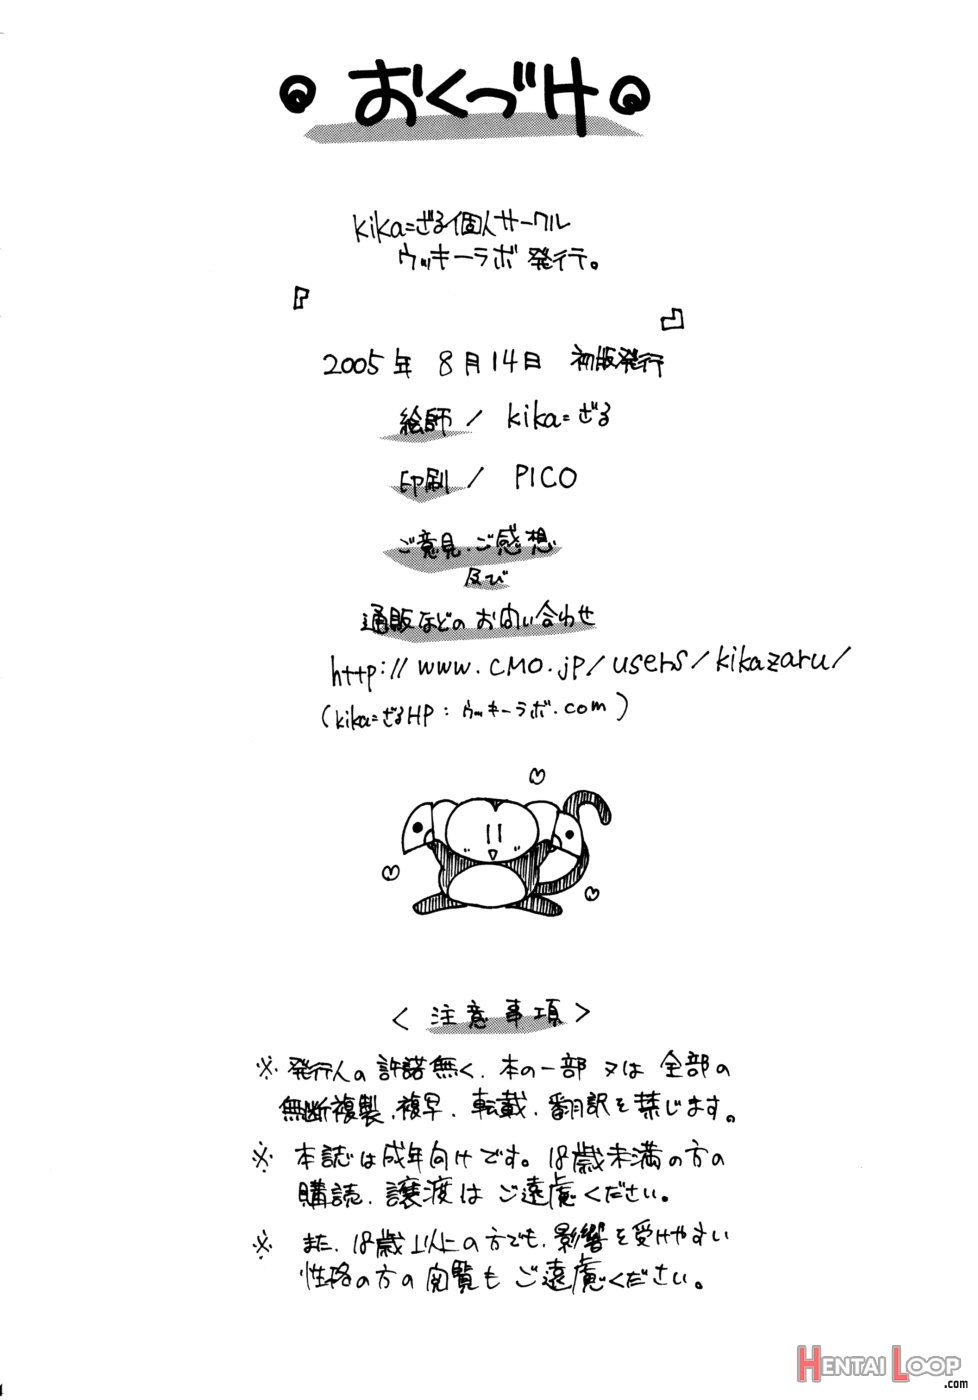 おくづけ
kika=ざる個人サークル
ウッキーラボ 発行。
『
』
2005年 8月14日 初版発行
絵師 / kika=ざる
印刷 / PICO
ご意見.ご感想
及び
通販などのお問い合わせ
http://www.cmo.jp/users/kikazaru/
(kika=ざるHP: ウッキーラボ.com)
< 注意事項 >
※ 発行人の許諾無く、本の一部又は全部の
無断複製、複写、転載、翻訳を禁じます。
※ 本誌は成年向けです。18歳未満の方の
購読、譲渡はご遠慮ください。
※ また、18歳以上の方でも、影響を受けやすい
性格の方の閲覧もご遠慮ください。
HENTAI LOOP
.com